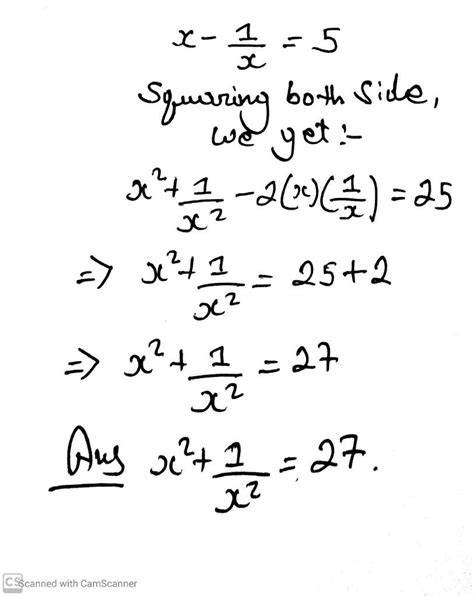 x - 1/x = 5
Squaring both side,
we get :-
x² + 1/x² - 2(x)(1/x) = 25
=> x² + 1/x² = 25 + 2
=> x² + 1/x² = 27
Ans x² + 1/x² = 27.
CS Scanned with CamScanner